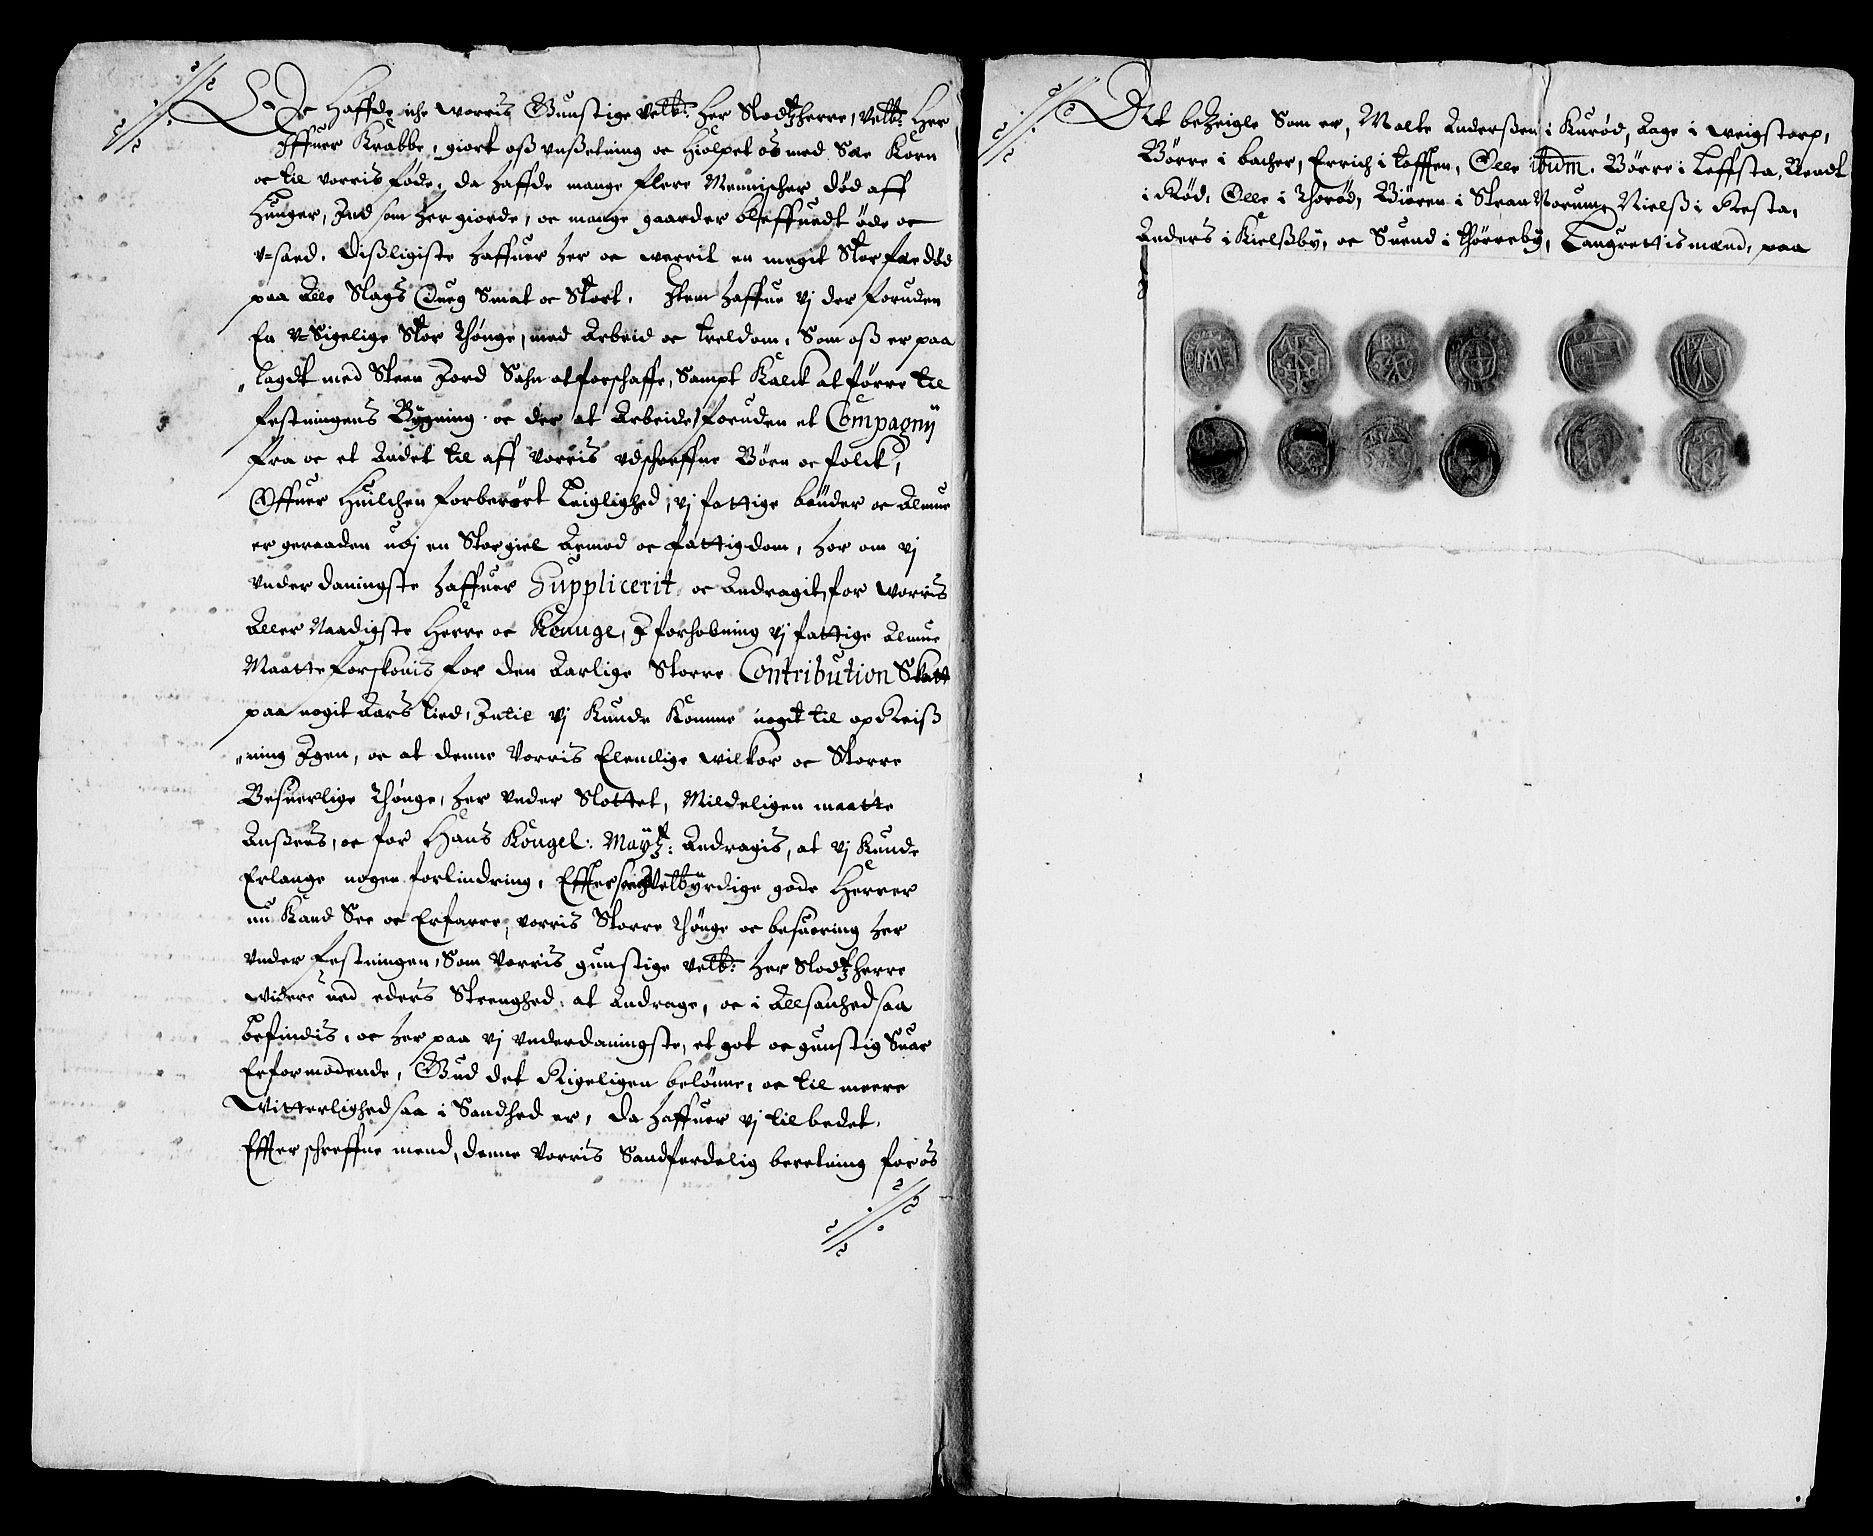 Da Haffde iche worris Gunstige Velb: Her Slodtzherre, Velb: Her
Iffuer Krabbe, giort oß vnßetning oc Hiolpet os med Sæe Korn
oc til vorris føde, da haffde mange flere Mennischer død aff
Hunger, Ind som her giorde, oc mange gaarder bleffuedt øde oc
v-saed. Dißligiste haffuer her oc werrit en megit Stor fæe død
paa Alle Slags Queg Smat oc Stort. Item haffue vj der foruden
En v-Sigelige Stor thønge, med Arbeid oc treldom, Som oß er paa
lagdt med Steen Jord Sahn at forschaffe, Sampt Kalck at førre til
festningens Bygning oc der at Arbeide, foruden et Compagnij
fra oc et Andet til aff vorris vdschreffne Børn oc folck,
Offuer Huilchen forberørt Leiglighed, vj fattige bønder oc Almue
er geraaden udj en Stor giel Armod oc fattigdom, her om vj
vnderdaningste haffuer Supplicerit, oc Andragit, for worris
Aller Naadigste Herre oc Konnge, I forhobning vj fattige Almue
Maatte forskonis for den Aarlige Storre Contribution Skatt
paa nogit Aars tied, Intil vj Kunde Komme nogit til opReiß
ning Igen, oc at denne Vorris Elendlige wilkor oc Storre
Besuerlige thønge, her vnder Slottet, Mildeligen maatte
Anßees, oc for Hans Kongel: Maytz: Andragis, at vj Kunde
Erlange nogen forlindring, Effterson Velbÿrdige gode Herrer
nu Kand See oc Erfarre, vorris Storre thønge oc besuering her
vnder festningen, Som Vorris gunstige velb: Her Slodtzherre
widere ved eders Strenghed, at Andrage, oc i All sanhed saa
befindis, oc her paa vj vnderdaningste, et got oc gunstig Suar
Erformodende, Gud det Rigeligen belønne, oc til meere
Witterlighed saa i Sandhed er, da haffuer vj til bedet,
Effter schreffne mend, denne Vorris Sandferdelig beretning for os
At beZeigle Som er, Malte Anderßen i Kurød, Aage i weigstorp,
Børre i bacher, Errich i tofften, Olle ibidm. Børre i Leffsta, Arendt
i Rød, Olle i Thorød, Biøren i Stran Norum, Nielß i Resta,
Anders i Kielßby, oc Suend i thørreby, Laugrettis mænd, paa